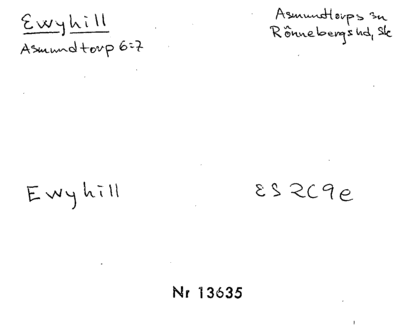 Ewyhill
Asmundtorp 6:7
Asmundtorps sn
Rönnebergs hd, Sk
Ewyhill
ES 2C9e
Nr 13635